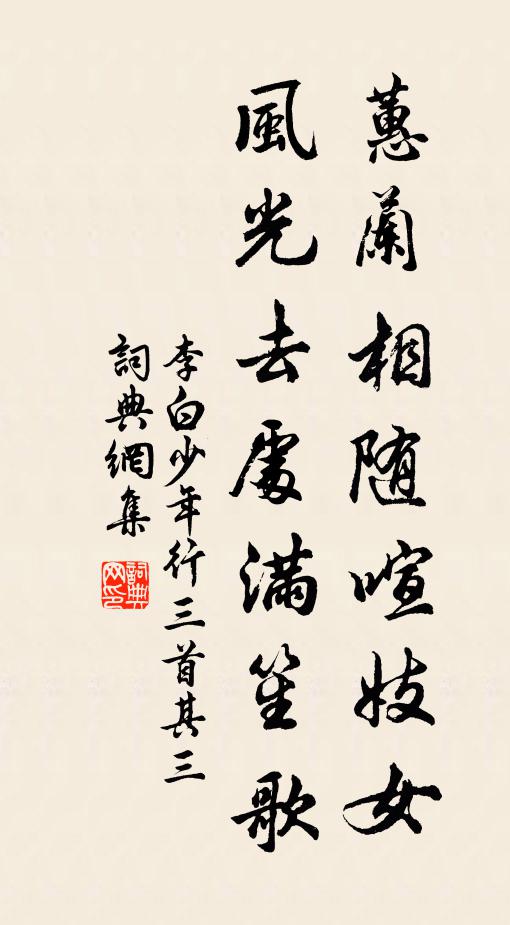 蕙蘭相随喧妓女
風光去處滿笙歌
李白少年行三首其三
詞典網集
詞典网印